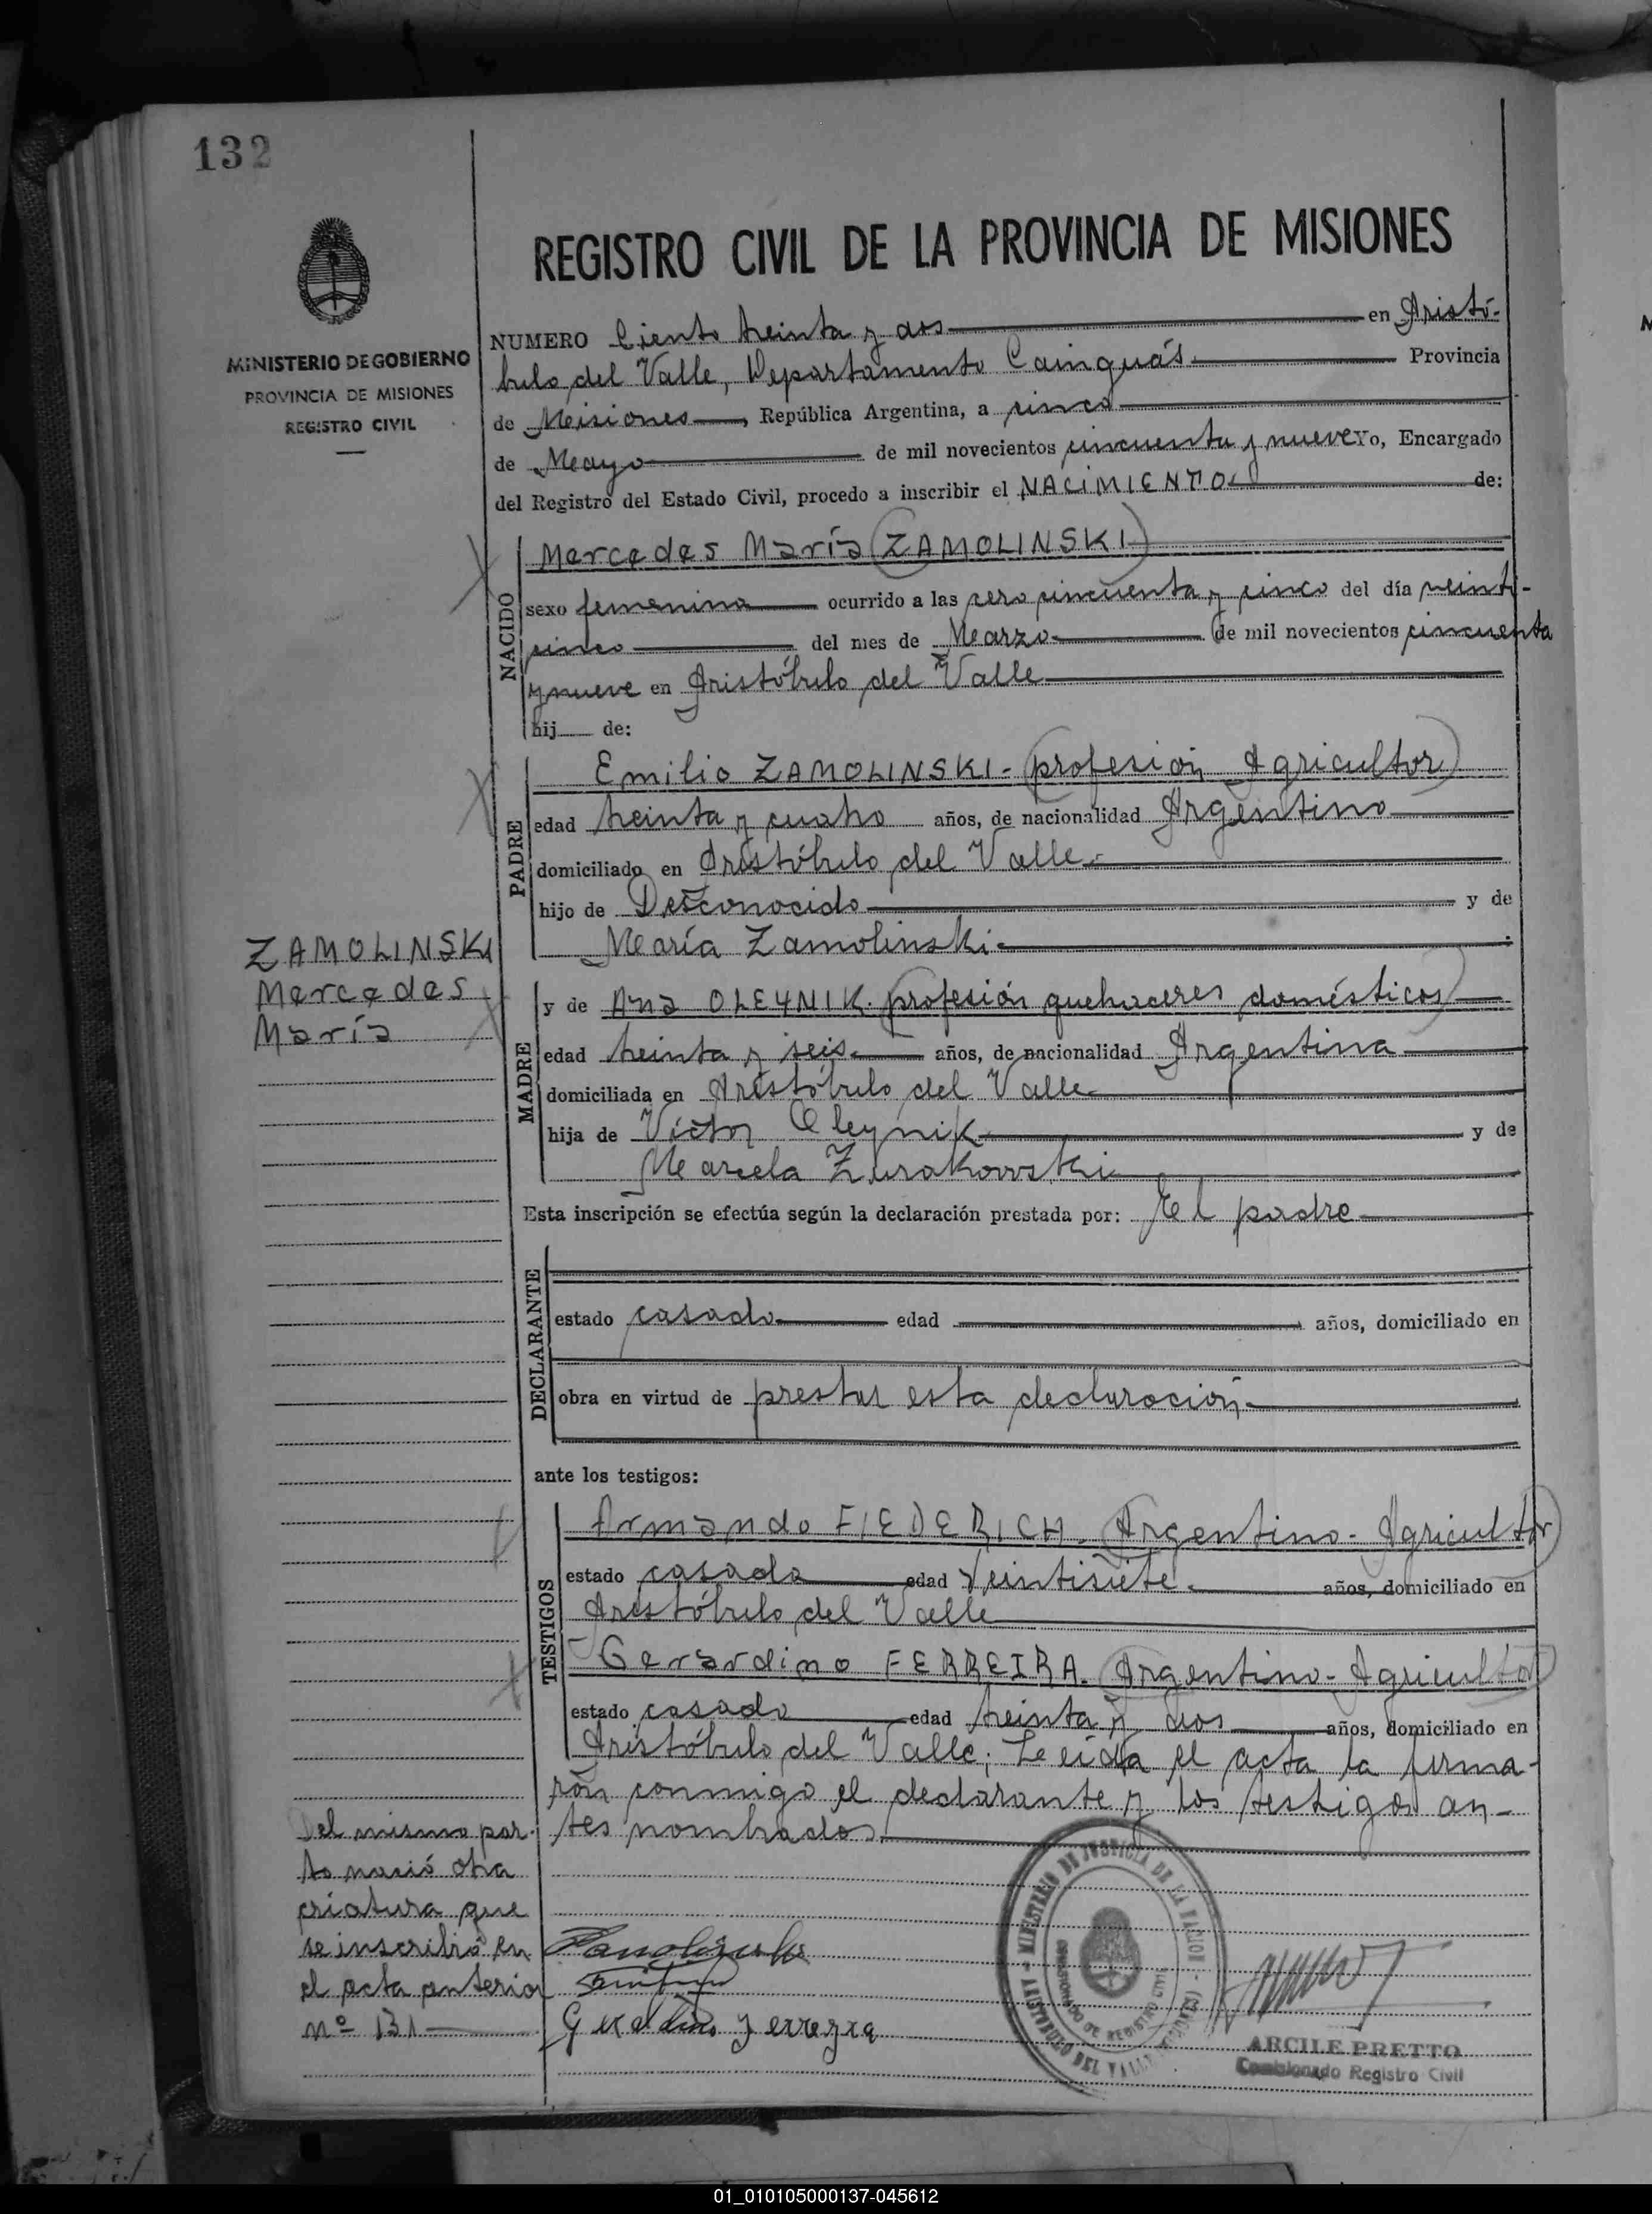 132
MINISTERIO DE GOBIERNO
PROVINCIA DE MISIONES
REGISTRO CIVIL
REGISTRO CIVIL DE LA PROVINCIA DE MISIONES
NUMERO Ciento treinta y dos en Aristó-
bulo del Valle, Departamento Cainguás Provincia
de Misiones, República Argentina, a cinco
de Mayo de mil novecientos cincuenta y nueve Yo, Encargado
del Registro del Estado Civil, procedo a inscribir el NACIMIENTO de:
NACIDO
Mercedes María (ZAMOLINSKI)
sexo femenino ocurrido a las cero cincuenta y cinco del día veinti-
cinco del mes de Marzo de mil novecientos cincuenta
y nueve en Aristóbulo del Valle
hij de:
PADRE
Emilio ZAMOLINSKI - (profesión Agricultor)
edad treinta y cuatro años, de nacionalidad Argentino
domiciliado en Aristóbulo del Valle
hijo de Desconocido y de
María Zamolinski
ZAMOLINSKI
Mercedes
María
MADRE
y de Ana OLEYNIK. (profesión quehaceres domésticos)
edad treinta y seis años, de nacionalidad Argentina
domiciliada en Aristóbulo del Valle
hija de Víctor Oleynik y de
Marcela Zurakowski
Esta inscripción se efectúa según la declaración prestada por: El padre
DECLARANTE
estado casado edad años, domiciliado en
obra en virtud de prestar esta declaración
ante los testigos:
TESTIGOS
Armando FIEDERICH. (Argentino - Agricultor)
estado casado edad Veintisiete. años, domiciliado en
Aristóbulo del Valle
Gerardino FERREIRA. (Argentino - Agricultor)
estado casado edad treinta y dos años, domiciliado en
Aristóbulo del Valle; Leída el acta la firma-
rón conmigo el declarante y los testigos an-
tes nombrados
Del mismo par-
to nació otra
criatura que
se inscribió en
el acta anterior
nº 131
MINISTERIO DE JUSTICIA DE LA NACION
ARISTOBULO DEL VALLE (MISIONES)
ARCILE PRETTO
Comisionado Registro Civil
01_010105000137-045612